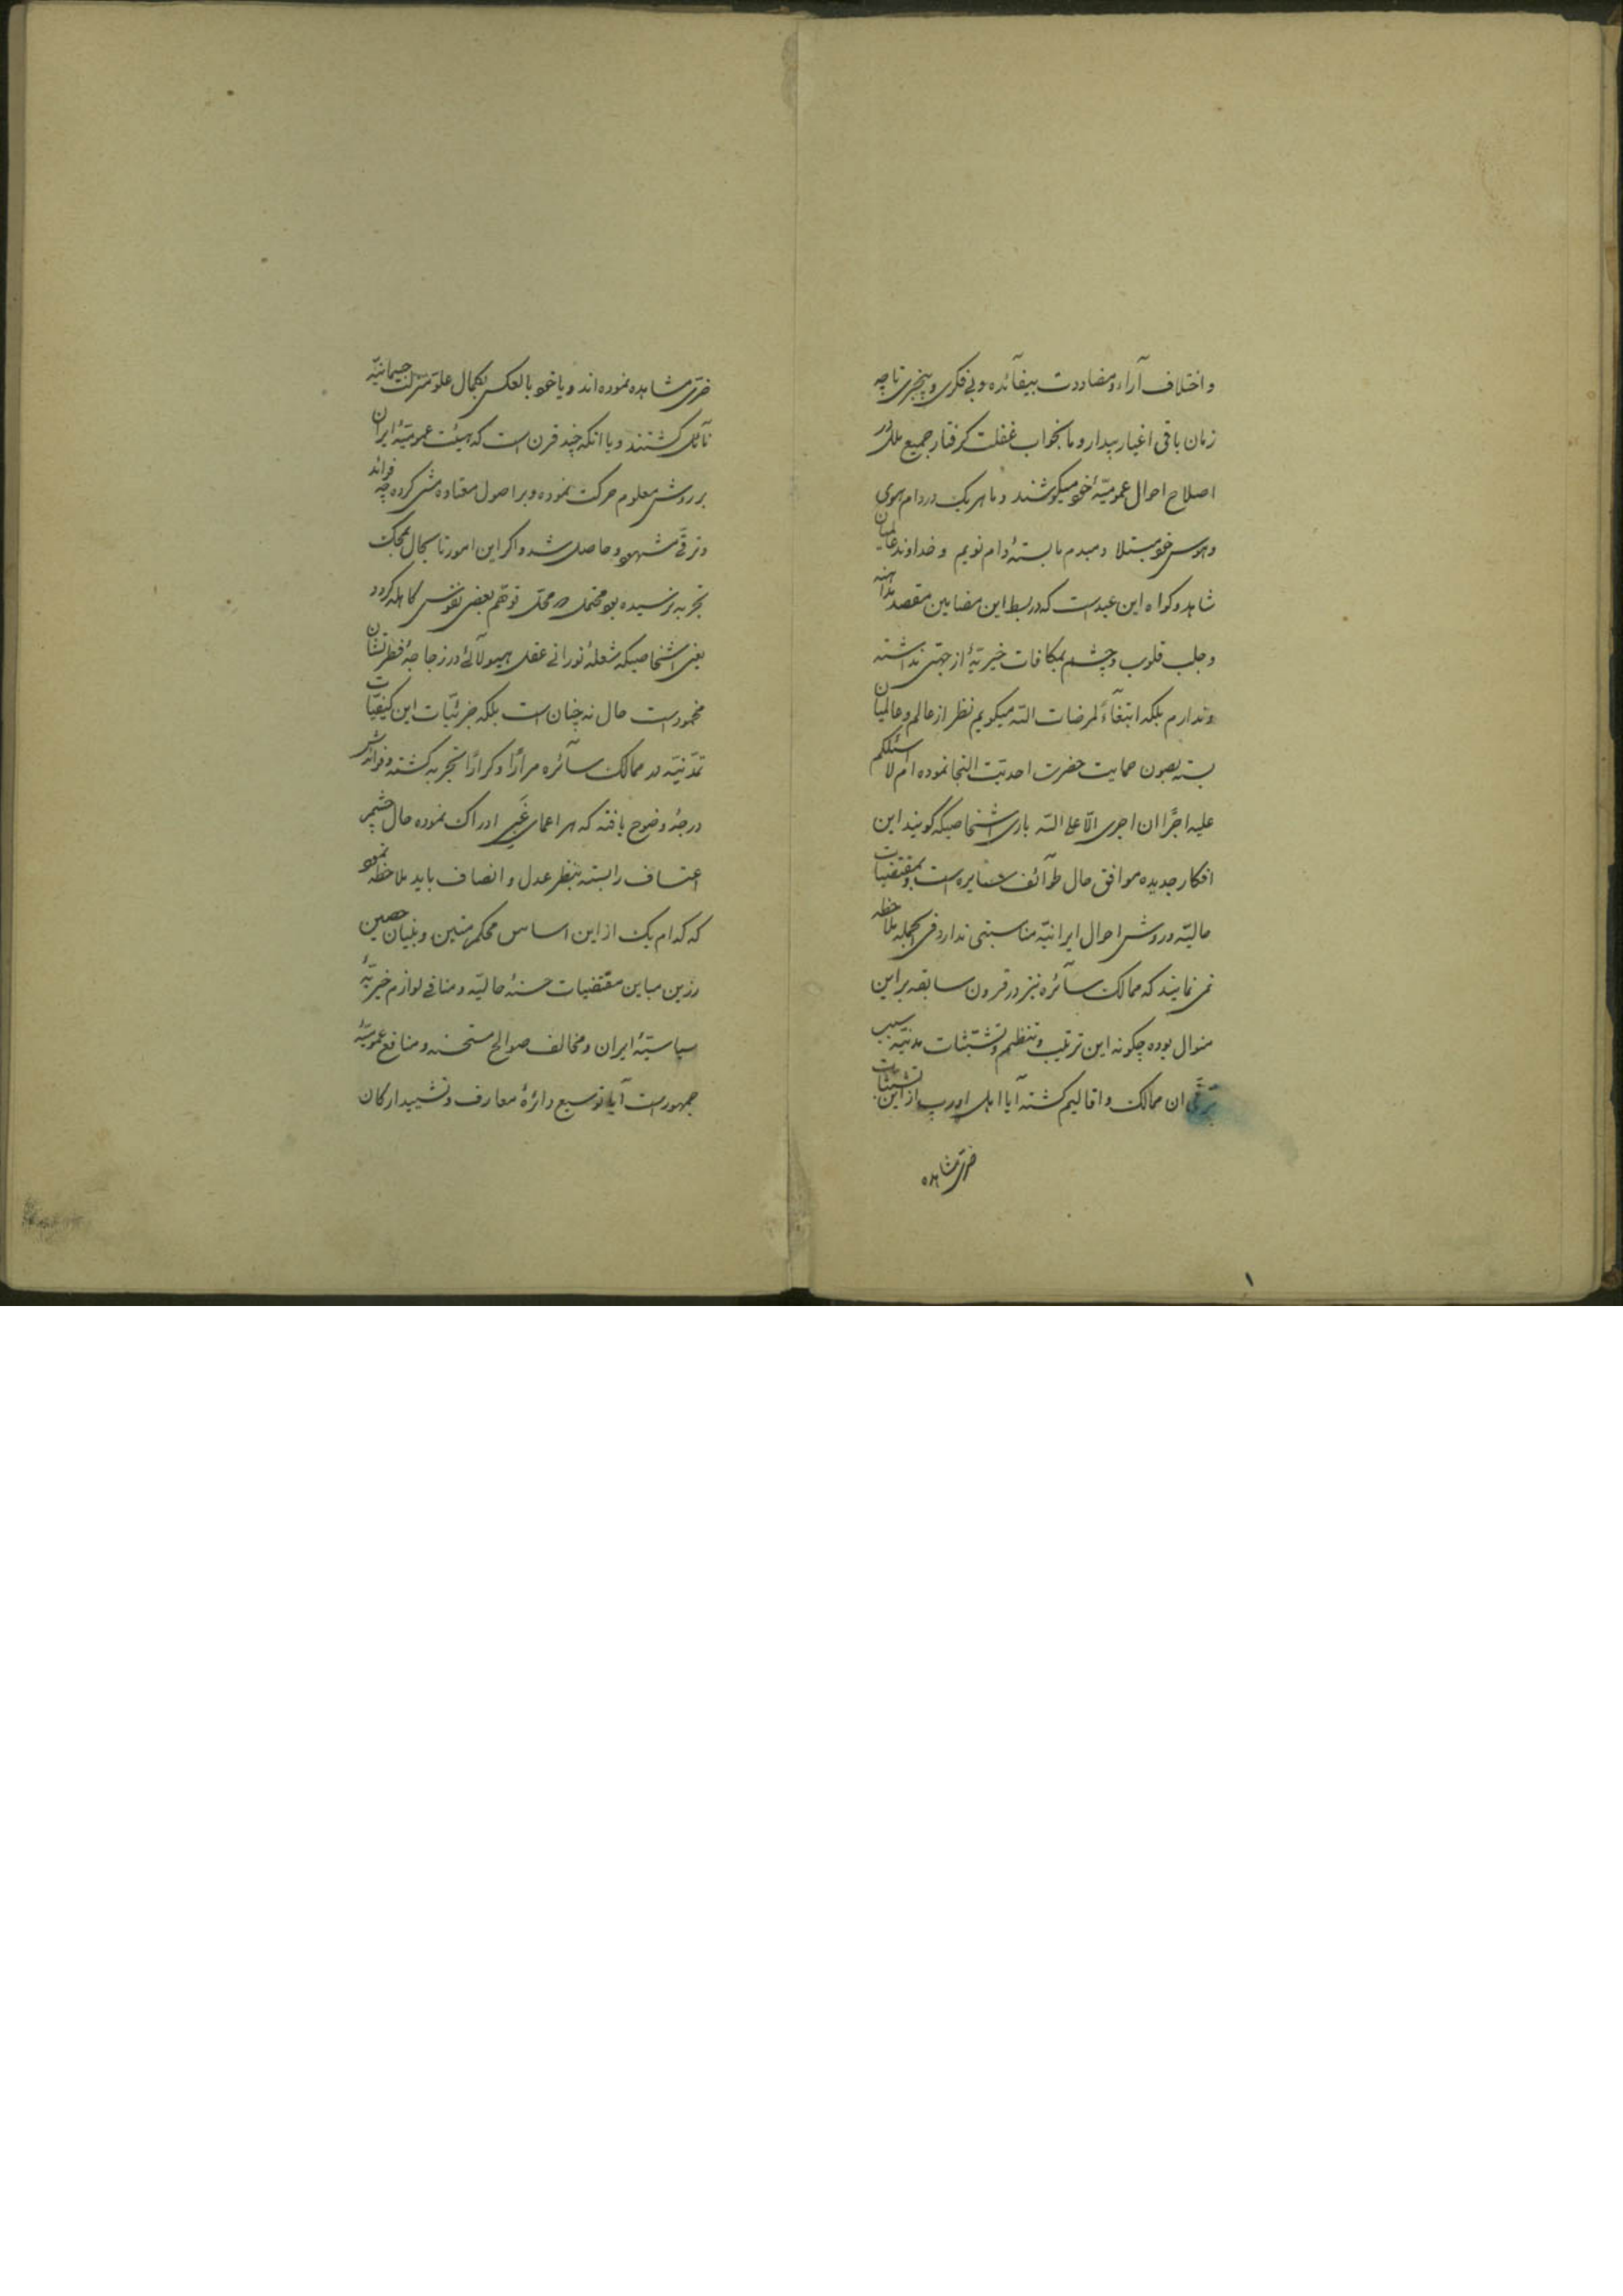 و اختلاف آراء و مضاددت بیفائده و بی فکری و بیخبری تا چه
زمان باقی اغیار بیدار و ما بخواب غفلت گرفتار جمیع ملل در
اصلاح احوال عمومیّهٔ خود میکوشند و ما هر یک در دام هوی
و هوس خود مبتلا و مبدم ما بستهٔ دام نویم و خداوند عالمیان
شاهد و گواه این عبد است که در بسط این مضامین مقصد مداهنه
و جلب قلوب و چشم بمکافات خیریّهٔ از جهتی نداشته
و ندارم بلکه ابتغآءً لمرضات الله میگویم نظر از عالم و عالمیان
بسته بصون حمایت حضرت احدیّت التجا نموده ام لا اسئلکم
علیه اجرًا ان اجری الّا علی الله باری اشخاصیکه گویند این
افکار جدیده موافق حال طوآئف سایره است و بمقتضیات
حالیّه و روش احوال ایرانیّه مناسبتی ندارد فی الجمله ملاحظه
نمی نمایند که ممالک سآئره نیز در قرون سابقه بر این
منوال بوده چگونه این ترتیب و تنظیم و تشبّثات مدنیّه سبب
ترقّی ان ممالک و اقالیم گشته آیا اهل اورپ از این تشبّثات
ضرری مشاهده
ضرری مشاهده نموده اند و یا خود بالعکس بکمال علوّ منزلت جسمانیّه
نآئل گشتند و یا انکه چند قرن است که هیئت عمومیّهٔ ایران
بر روش معلوم حرکت نموده و بر اصول معتاده مشی کرده چه فوائد
و ترقّی مشهود و حاصل شد و اگر این امور تا بحال بمحک
تجربه نرسیده بود محتمل و محلّ توهّم بعضی نفوس کاهله گردد
یعنی اشخاصیکه شعلهٔ نورانی عقل هیولآئی در زجاجهٔ فطرتشان
مخمود است حال نه چنان است بلکه جزئیّات این کیفیّات
تمدّنیّه در ممالک سآئره مرارًا و کرارًا تجربه گشته و فوائدش
درجهٔ وضوح یافته که هر اعمای غبی ادراک نموده حال چشم
اعتساف را بسته بنظر عدل و انصاف باید ملاحظه نمود
که کدام یک از این اساس محکم متین و بنیان حصین
رزین مباین مقتضیات حسنهٔ حالیّه و منافی لوازم خیریّهٔ
سیاسیّهٔ ایران و مخالف صوالح مستحسنه و منافع عمومیّهٔ
جمهور است آیا توسیع دائرهٔ معارف و تشیید ارکان